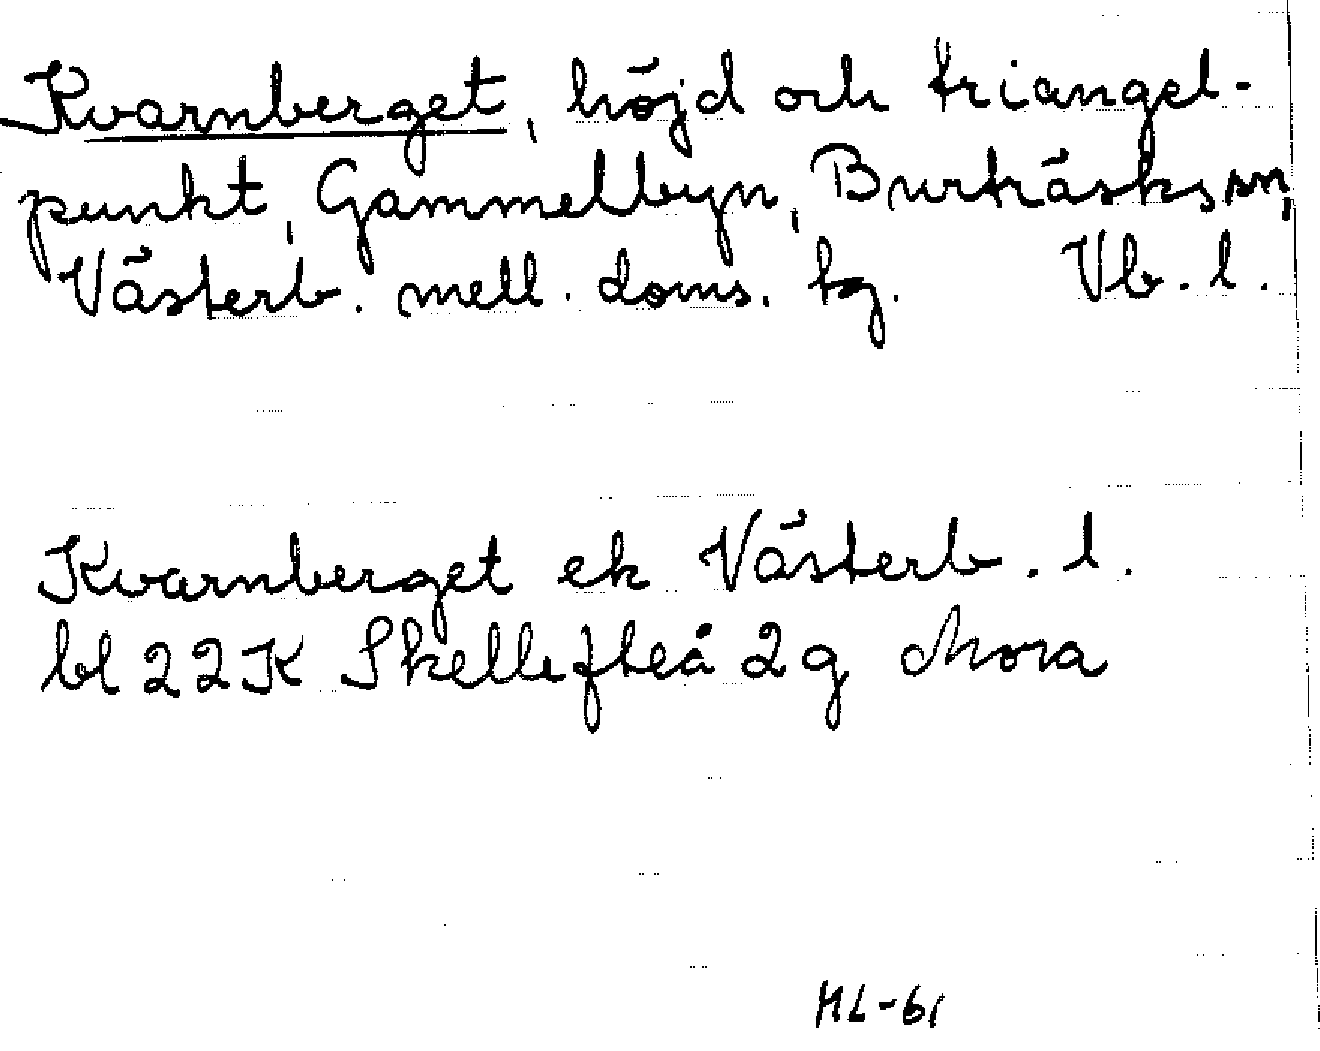 Kvarnberget, höjd och triangel-
punkt, Gammelbyn, Burträsks sn,
Västerb. mell. doms. tg. Vb. l.
Kvarnberget ek Västerb. l.
bl 22K Skellefteå 2g Mora
HL-61